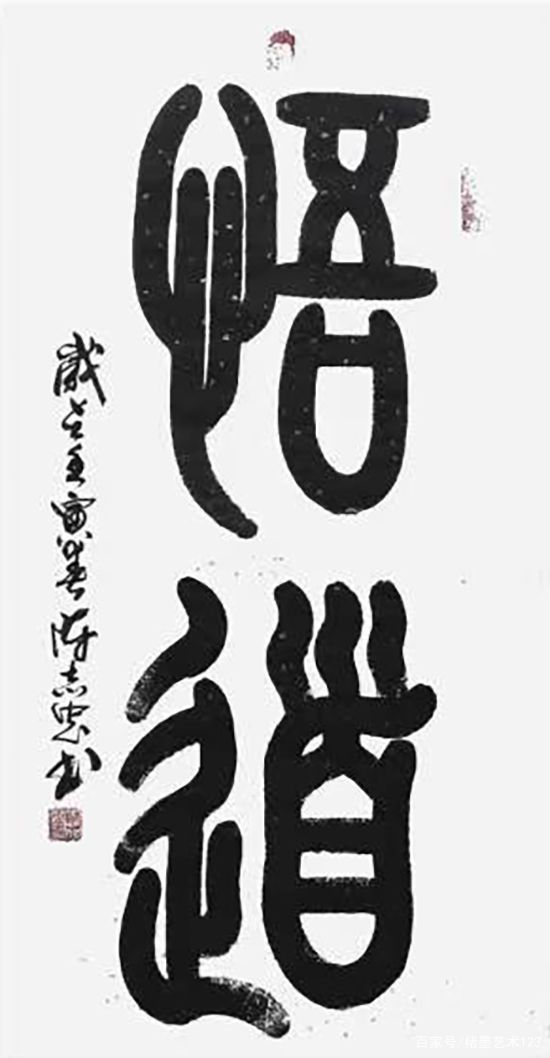 悟道
歲在壬寅春陈志忠书
百家号/格墨艺术123